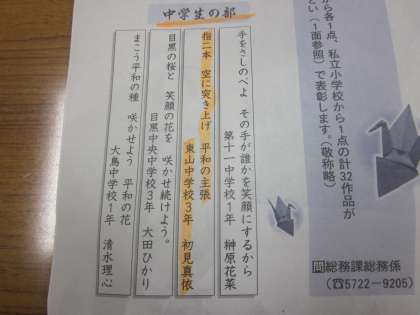 中学生の部
から各1点、私立小学校から1点の計32作品が
い（1面参照）で表彰します。（敬称略）
問総務課総務係
（☎5722－9205）
手をさしのべよ　その手が誰かを笑顔にするから
第十一中学校1年　榊原花菜
指二本　空に突き上げ　平和の主張
東山中学校3年　初見真依
目黒の桜と　笑顔の花を　咲かせ続けよう。
目黒中央中学校3年　太田ひかり
まこう平和の種　咲かせよう　平和の花
大鳥中学校1年　清水理心